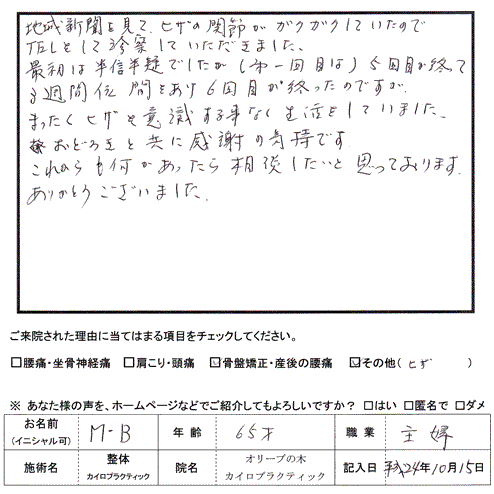 地域新聞を見て、ヒザの関節がガクガクしていたので
TELとして診察していただきました。
最初は半信半疑でしたが(第一回目は)5回目が終って
3週間位間をあけ6回目が終ったのですが、
まったくヒザを意識する事なく生活をしていました。
おどろきと共に感謝の気持です。
これからも何かあったら相談したいと思っております。
ありがとうございました。
ご来院された理由に当てはまる項目をチェックしてください。
□腰痛・坐骨神経痛 □肩こり・頭痛 ☑骨盤矯正・産後の腰痛 ☑その他(ヒザ )
※ あなた様の声を、ホームページなどでご紹介してもよろしいですか? □はい □匿名で □ダメ
お名前 (イニシャル可) M-B 年齢 65才 職業 主婦
施術名 整体 カイロプラクティック 院名 オリーブの木 カイロプラクティック 記入日 平成24年10月15日